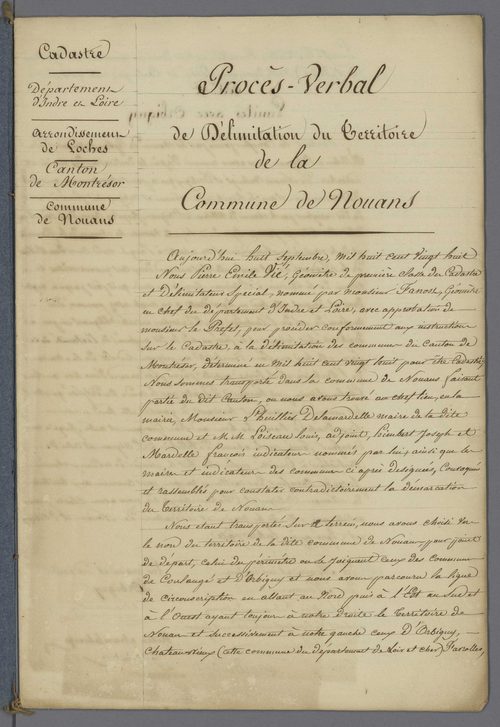 Cadastre
Département
d'Indre et Loire
Arrondissement
de Loches
Canton
de Montrésor
Commune
de Nouans
Procès-Verbal
de Délimitation du Territoire
de la
Commune de Nouans
Aujourd'hui huit Septembre, mil huit cent vingt huit
Nous Pierre Emile Vié, Géomètre de première Classe du Cadastre
et Délimitateur Spécial, nommé par monsieur Géomètre
en chef du département d'Indre et Loire, avec approbation de
monsieur le Préfet, pour procéder conformément aux instructions
sur le Cadastre, à la délimitation des communes du Canton de
Montrésor, déterminé en mil huit cent vingt huit pour être Cadastré;
Nous sommes transporté dans la commune de Nouans faisant
partie du dit Canton, ou nous avons trouvé au chef lieu, en la
mairie, Monsieur Delamardelle maire de la dite
commune et M.M. Loiseau Louis, adjoint, Joseph et
Mardelle françois indicateur nommés par lui, ainsi que les
maires et indicateurs des communes ci après designées, Convoqués
et rassemblés pour constater contradictoirement la démarcation
du Territoire de Nouans
Nous étant transportés sur le terrein, nous avons choisi vers
le nord du territoire de la dite commune de Nouans pour point
de départ, celui du périmètre ou se joignent ceux des communes
de Coulangé et d'Orbigny et nous avons parcouru la ligne
de circonscription en allant au Nord puis à l'Est au Sud et
à l'Ouest ayant toujours à notre droite le territoire de
Nouan et successivement à notre gauche ceux d'Orbigny,
Chateauvieux (cette commune du département de Loir et cher) Faverolles,